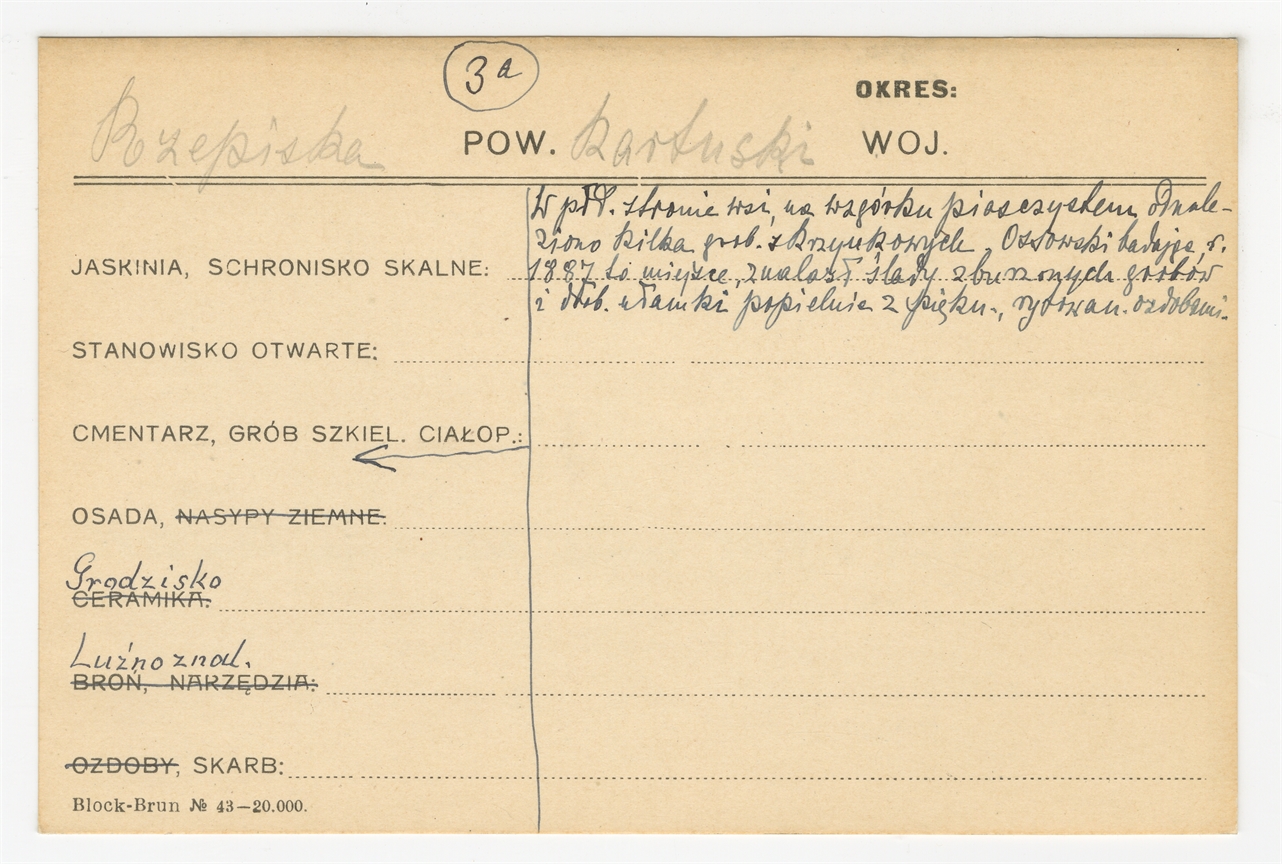 3a
OKRES:
Rzepiska POW. Kartuski WOJ.
W płd. stronie wsi, na wzgórku piasczystem odnale-
ziono kilka grob. skrzynkowych. Ossowski badając, r.
JASKINIA, SCHRONISKO SKALNE: 1887 to miejsce, znalazł ślady zburzonych grobów
i drob. ułamki popielnic z piękn., rytowan. ozdobami.
STANOWISKO OTWARTE:
CMENTARZ, GRÓB SZKIEL. CIAŁOP.:
OSADA, NASYPY ZIEMNE.
Grodzisko
CERAMIKA.
Luźno znal.
BROŃ, NARZĘDZIA:
OZDOBY, SKARB:
Block-Brun № 43—20.000.